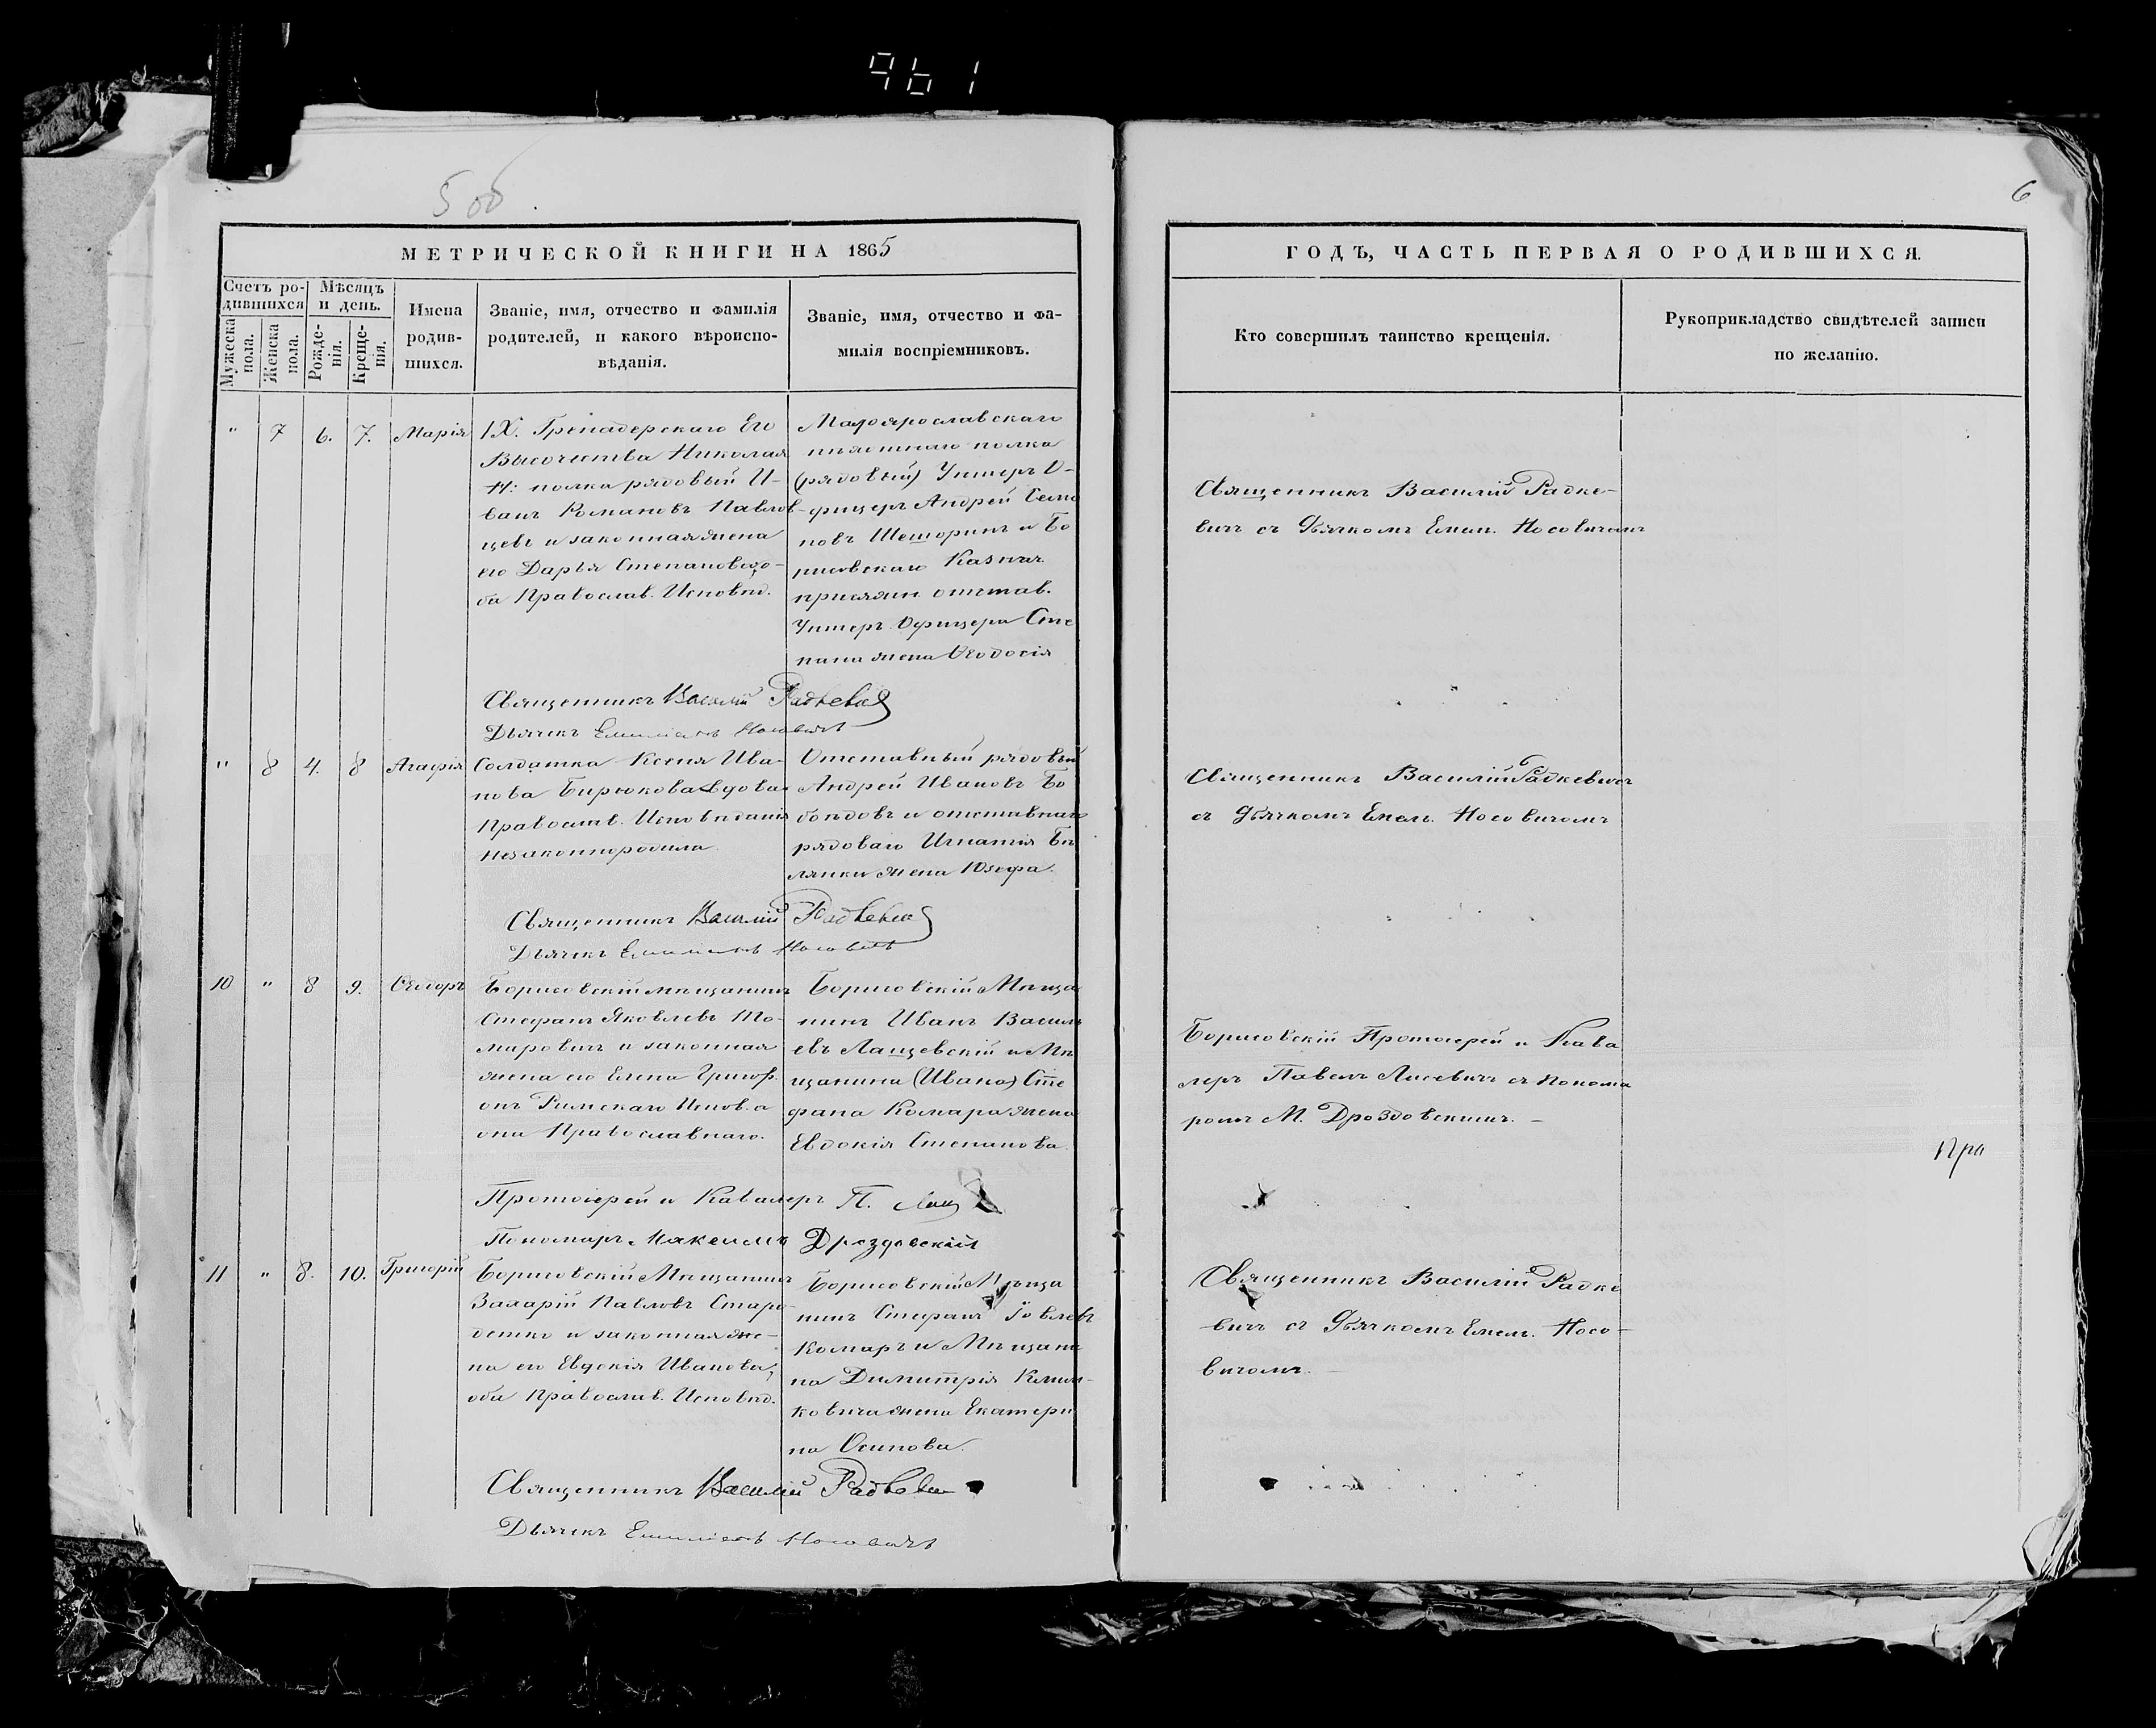 961
5 об.
6
МЕТРИЧЕСКОЙ КНИГИ НА 1865
ГОДЪ, ЧАСТЬ ПЕРВАЯ О РОДИВШИХСЯ.
Счетъ ро-
дившихся
Мужеска
пола.
Женска
пола.
Мѣсяцъ
и день.
Рожде-
нія.
Креще-
нія.
Имена
родив-
шихся.
Званіе, имя, отчество и фамилія
родителей, и какого вѣроиспо-
вѣданія.
Званіе, имя, отчество и фа-
милія воспріемниковъ.
Кто совершилъ таинство крещенія.
Рукоприкладство свидѣтелей записи
по желанію.
" 7 6. 7. Марія
Гренадерскаго Его
Высочества Николая
Н: полка рядовый И-
ванъ Романовъ Павлов-
цевъ и законная жена
его Дарья Степановa о-
ба Православ. Исповѣд.
Малоярославскаго
пѣхотнаго полка
(рядовый) Унтеръ О-
фицеръ Андрей Семе
новъ Шешоринъ и Бо
рисовскаго Казнач.
присяжн. отстав.
Унтеръ Офицера Сте
пана жена Ѳеодосія
Священникъ Василій Радке-
вичъ съ Дьячкомъ Емил. Носовичемъ
Священникъ Василій Радкевич
Дьячекъ Емиліанъ Носовичъ
" 8 4. 8 Агафія
Солдатка Ксенія Ива-
нова Бирюкова вдова
Православ. Исповѣданія
незаконнородила
Отставный рядовый
Андрей Ивановъ Бо
боѣдовъ и отставнаго
рядоваго Игнатія Бѣ
лянки жена Юзефа.
Священникъ Василій Радкевичъ
съ Дьячкомъ Емел. Носовичемъ
Священникъ Василій Радкевич
Дьячекъ Емиліанъ Носовичъ
10 " 8 9. Ѳеодоръ
Борисовскій мѣщанинъ
Стефанъ Яковлевъ То-
мировичъ и законная
жена его Елена Григор.
онъ Римскаго Испов. а
она Православнаго.
Борисовскій Мѣща
нинъ Иванъ Василь
евъ Лащевскій и Мѣ
щанина (Ивана) Сте
фана Комара жена
Евдокія Степанова
Борисовскій Протоіерей и Кава
леръ Павелъ Лисевичъ съ Понома
ромъ М. Дроздовскимъ. –
Пра
Протоіерей и Кавалеръ П.
Пономарь Максимъ Дроздовскій
11 " 8. 10. Григорій
Борисовскій Мѣщанинъ
Захарій Павловъ Старо-
детко и законная же-
на его Евдокія Иванова,
оба Православ. Исповѣд.
Борисовскій Мѣща
нинъ Стефанъ Іовлевъ
Комаръ и Мѣщани
на Димитрія Клим-
ковича жена Екатери
на Осипова.
Священникъ Василій Радке
вичъ съ Дьячкомъ Емел. Носо-
вичемъ.
Священникъ Василій Радкевич
Дьячекъ Емиліанъ Носовичъ